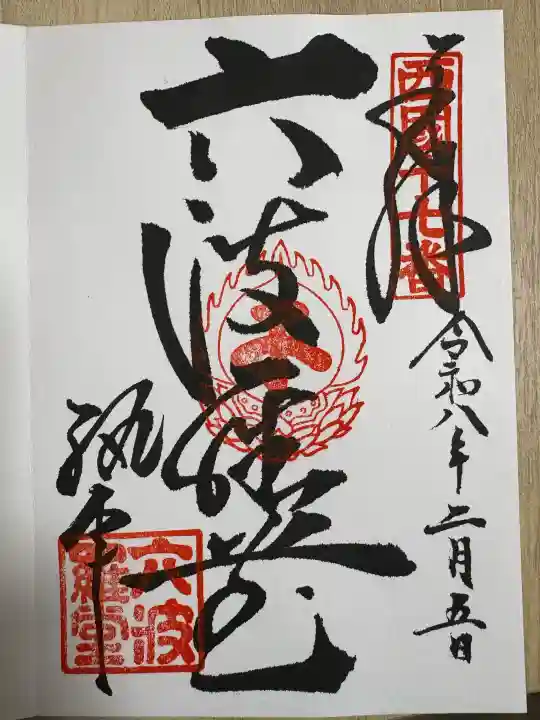 西國十七番
奉拝
令和八年二月五日
六波羅堂
執事
六波
羅堂